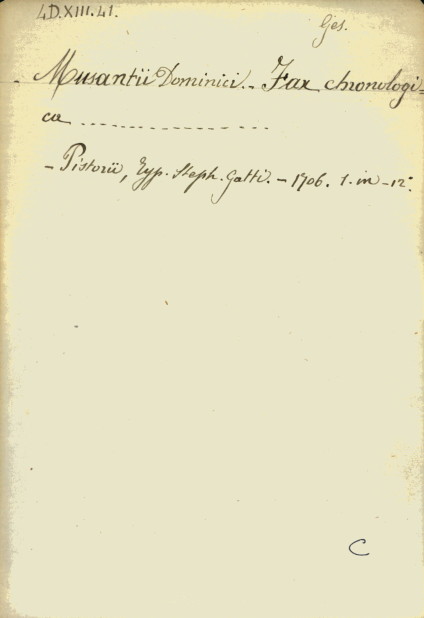 4D.XIII.41.
Ges.
Musantii Dominici. - Fax chronologi-
ca ..................
- Pistorii, Typ. Steph. Gatti. - 1706. 1. in - 12°.
C